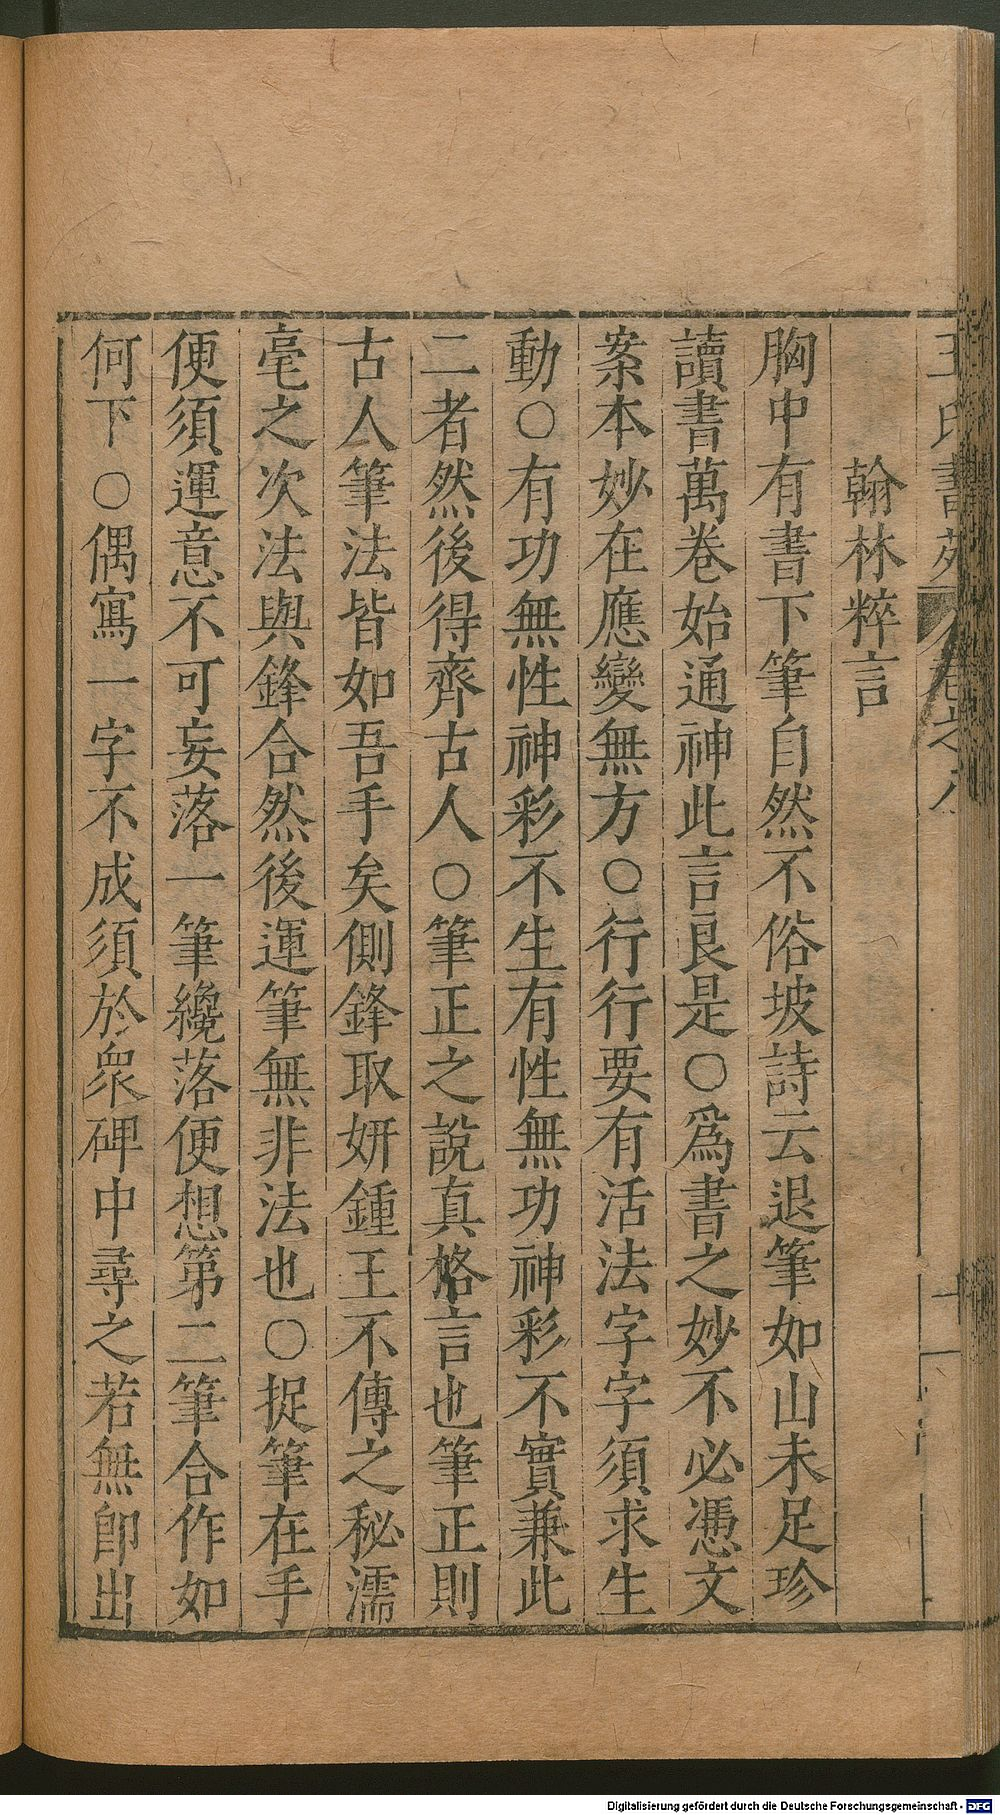 王氏書苑 卷之八
十一
翰林粹言
胸中有書下筆自然不俗坡詩云退筆如山未足珍
讀書萬卷始通神此言良是○爲書之妙不必憑文
案本妙在應變無方○行行要有活法字字須求生
動○有功無性神彩不生有性無功神彩不實兼此
二者然後得齊古人○筆正之說真格言也筆正則
古人筆法皆如吾手矣側鋒取妍鍾王不傳之秘濡
毫之次法與鋒合然後運筆無非法也○捉筆在手
便須運意不可妄落一筆纔落便想第二筆合作如
何下○偶寫一字不成須於衆碑中尋之若無卽出
Digitalisierung gefördert durch die Deutsche Forschungsgemeinschaft - DFG